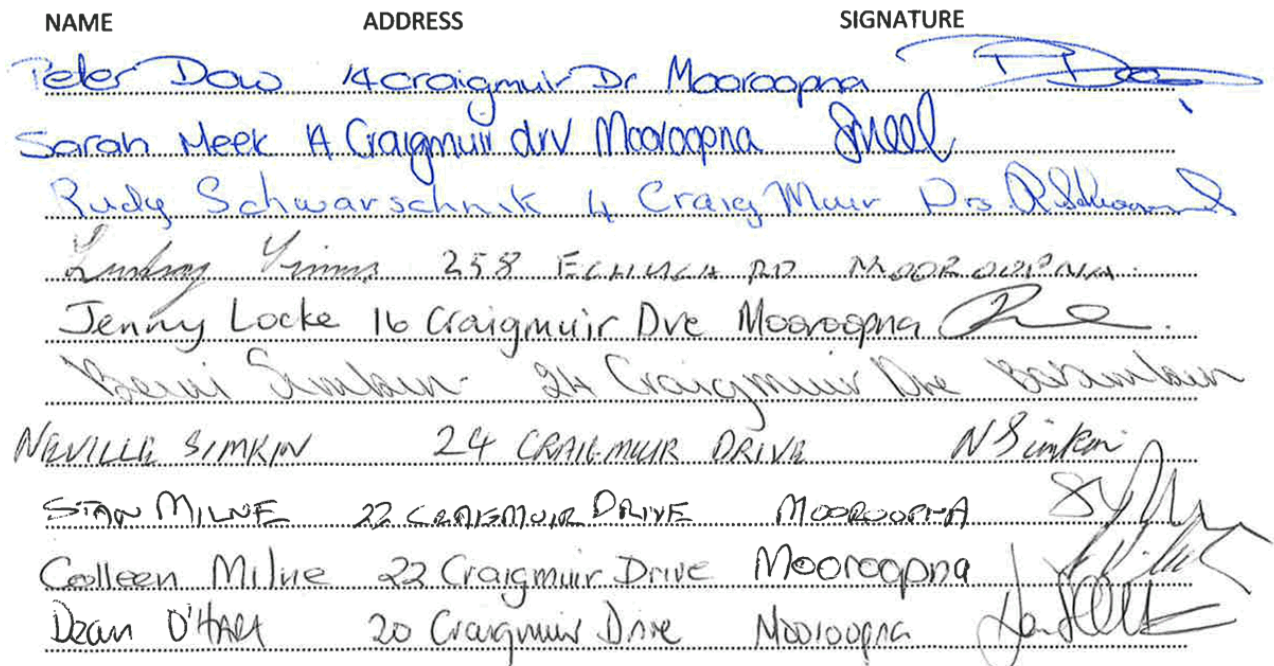 NAME ADDRESS SIGNATURE
Peter Dow 14 craigmuir Dr Mooroopna
Sarah Meek 14 Craigmuir drv Mooroopna
Rudy Schwarschnik 4 Craig Muir Drs
Lindsay 258 ECHUCA RD MOOROOPNA.
Jenny Locke 16 Craigmuir Dve Mooroopna
Simkin 24 Craigmuir Dve
NEVILLE SIMKIN 24 CRAIGMUIR DRIVE N Simkin
STAN MILNE 22 CRAIGMUIR DRIVE MOOROOPNA
Colleen Milne 22 Craigmuir Drive Mooroopna
Dean O'HARA 20 Craigmuir Drive Mooroopna